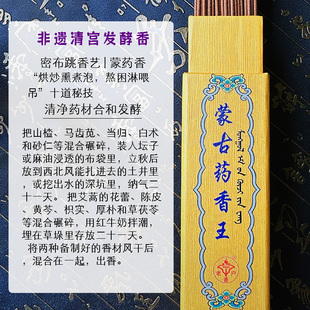 非遗清宫发酵香
密布跳香艺|蒙药香
“烘炒熏煮泡，熬困淋喂
吊”十道秘技
清净药材合和发酵
把山楂、马齿苋、当归、白术
和砂仁等混合碾碎，装入坛子
或麻油浸透的布袋里，立秋后
放到西北风能扎进去的土井里
，或挖出水的深坑里，纳气二
十一天。 把艾蒿的花蕾、陈皮
、黄芩、枳实、厚朴和草茯苓
等混合碾碎，用红牛奶拌潮，
埋在草垛里存放二十一天。
将两种备制好的香材风干后
，混合在一起，出香。
蒙古药香王